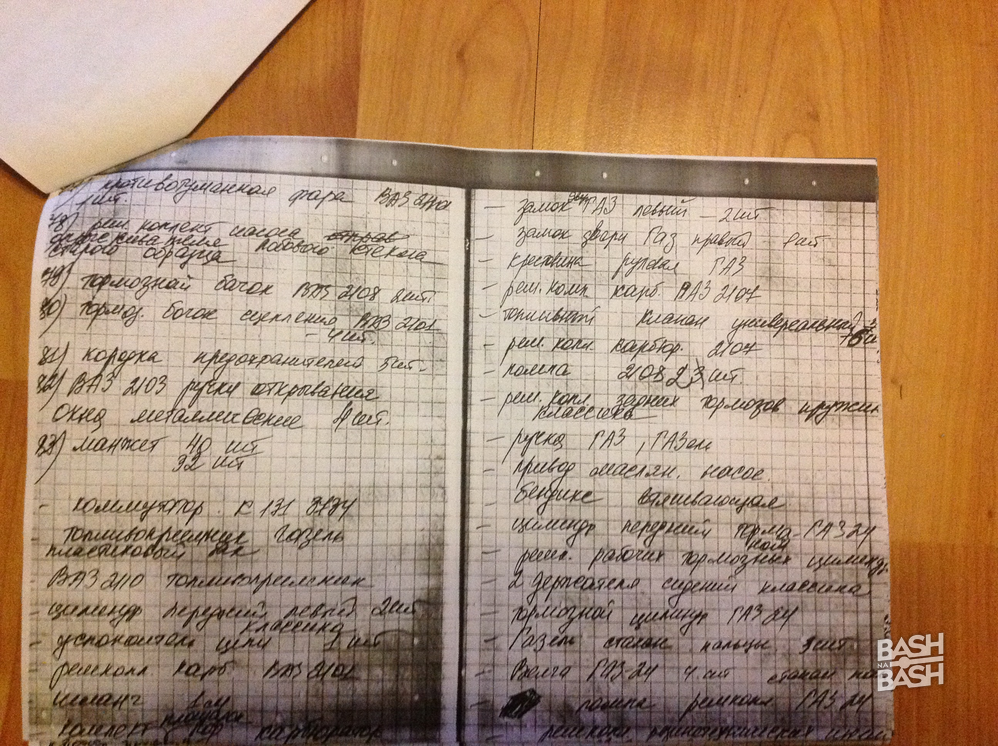 противотуманная фара ВАЗ 2101
1 шт.
78) рем. комплект насоса
лобового стекла
старого образца
79) тормозной бачок ВАЗ 2108 2шт.
80) тормоз. бачок сцепления ВАЗ 2101
4 шт.
81) колодка предохранителей 5шт.
82) ВАЗ 2103 ручки открывания
окна металлические 4 шт.
83) манжет 40 шт
32 шт
- коммутатор. К 131
- топливоприемник газель
пластиковый бак
ВАЗ 2110 топливоприемник
- цилиндр передний левый 2шт
классика
- успокоитель цепи 1 шт
ремкомп карб. ВАЗ 2101
шланг 1 м
комплект под карбюратор
- замок ГАЗ левый - 2шт
- замок двери ГАЗ правый шт
- крестовина рулевая ГАЗ
- рем. комп. карб. ВАЗ 2107
- топливный клапан универсальный
- рем. комп. карбюр. 2107
- помпа 2108 шт.
- рем. комп. задних тормозов пружин
классика
- ручка ГАЗ,
- привод маслян. насос.
- бендикс втягивающая
- цилиндр передний ГАЗ 24
- рем. рабочих тормозных цилиндр
- 2 держателя сидений классика
- тормозной цилиндр ГАЗ 24
- Газель стакан кольцы 3шт
- Волга ГАЗ 24 4 шт стакан
- помпа ремкомп. ГАЗ 24
- ремкомп.
BASH
НА
BASH